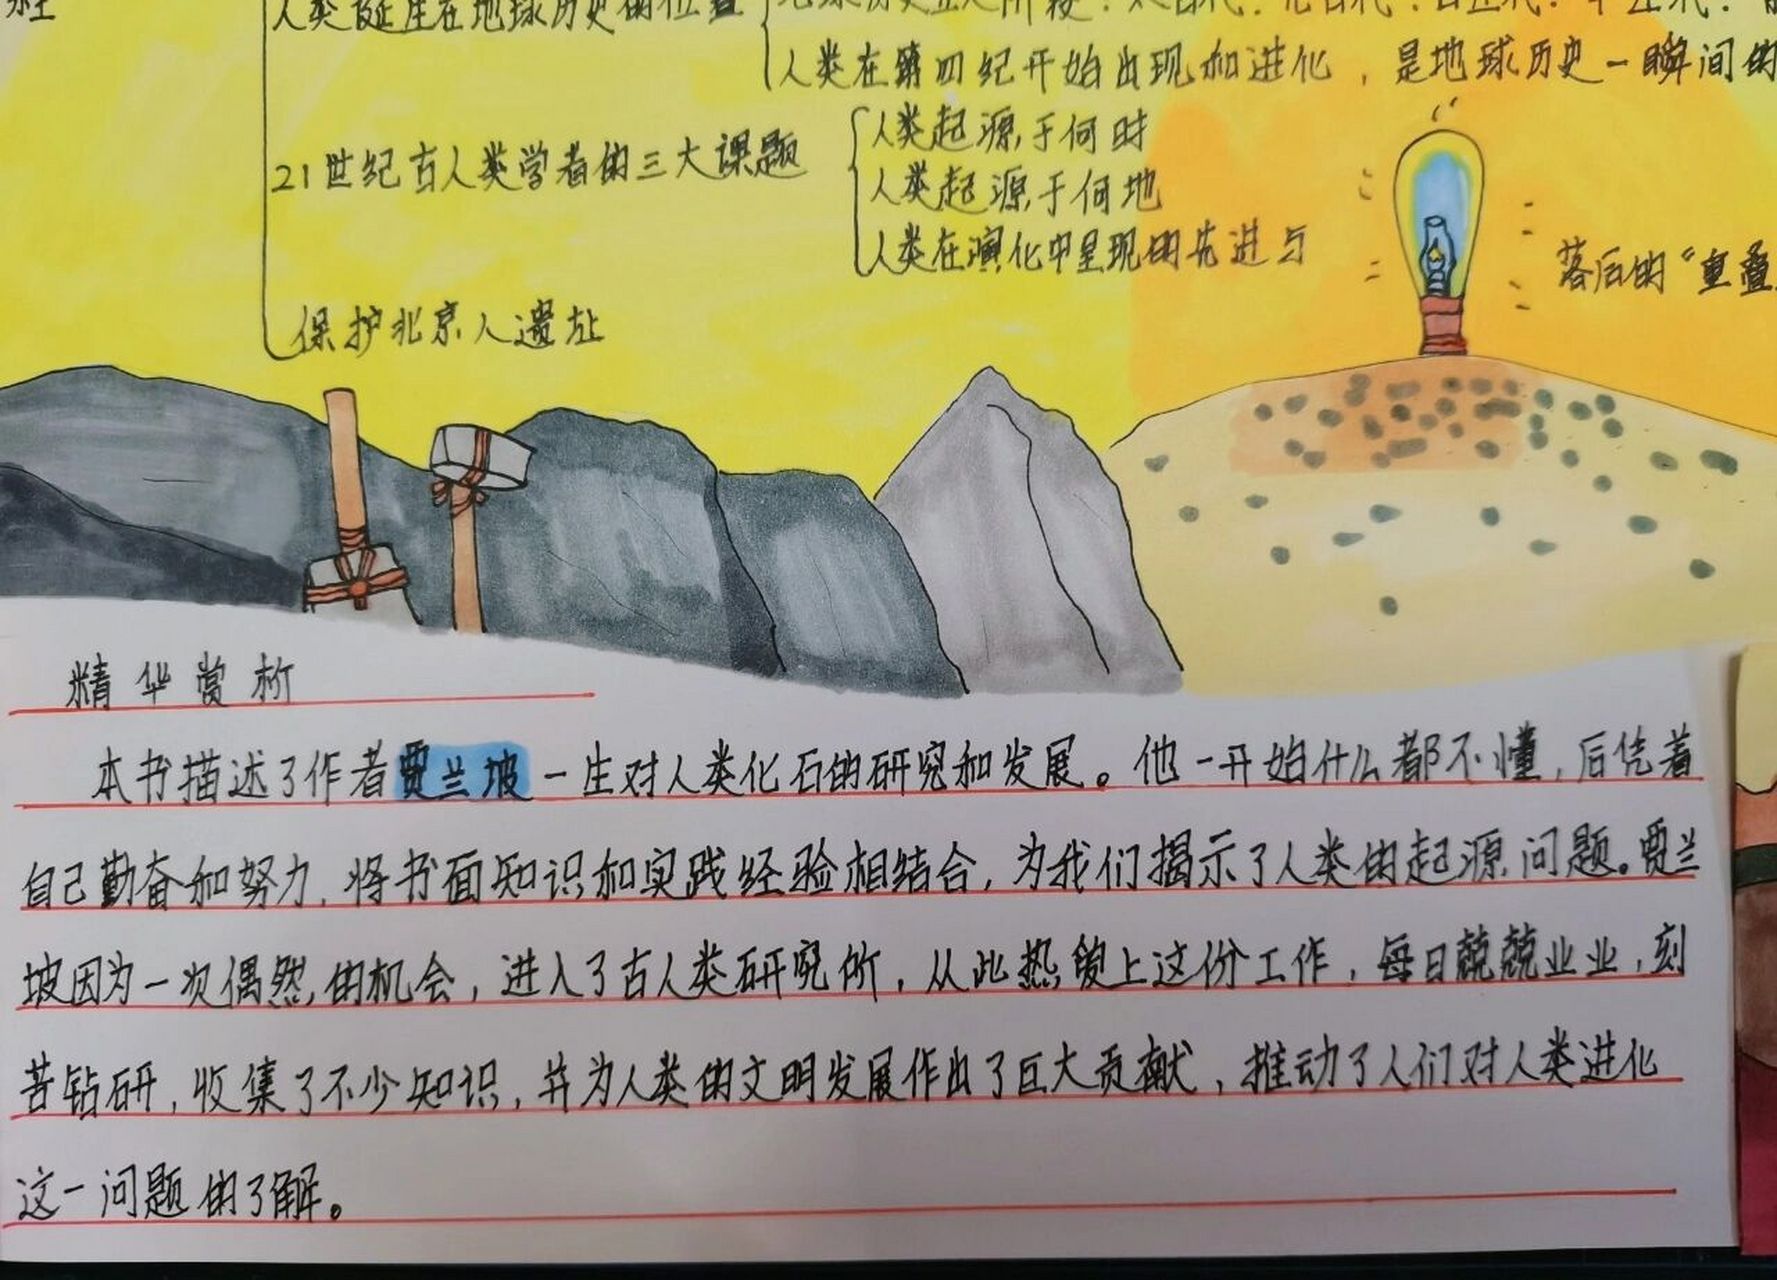 人类诞生在地球历史的位置
人类在第四纪开始出现和进化，是地球历史一瞬间的
21世纪古人类学者的三大课题
人类起源于何时
人类起源于何地
人类在演化中呈现的先进与
落后的“重叠
保护北京人遗址
精华赏析
本书描述了作者贾兰坡一生对人类化石的研究和发展。他一开始什么都不懂，后凭着
自己勤奋和努力，将书面知识和实践经验相结合，为我们揭示了人类的起源问题。贾兰
坡因为一次偶然的机会，进入了古人类研究所，从此热爱上这份工作，每日兢兢业业，刻
苦钻研，收集了不少知识，并为人类的文明发展作出了巨大贡献，推动了人们对人类进化
这一问题的了解。